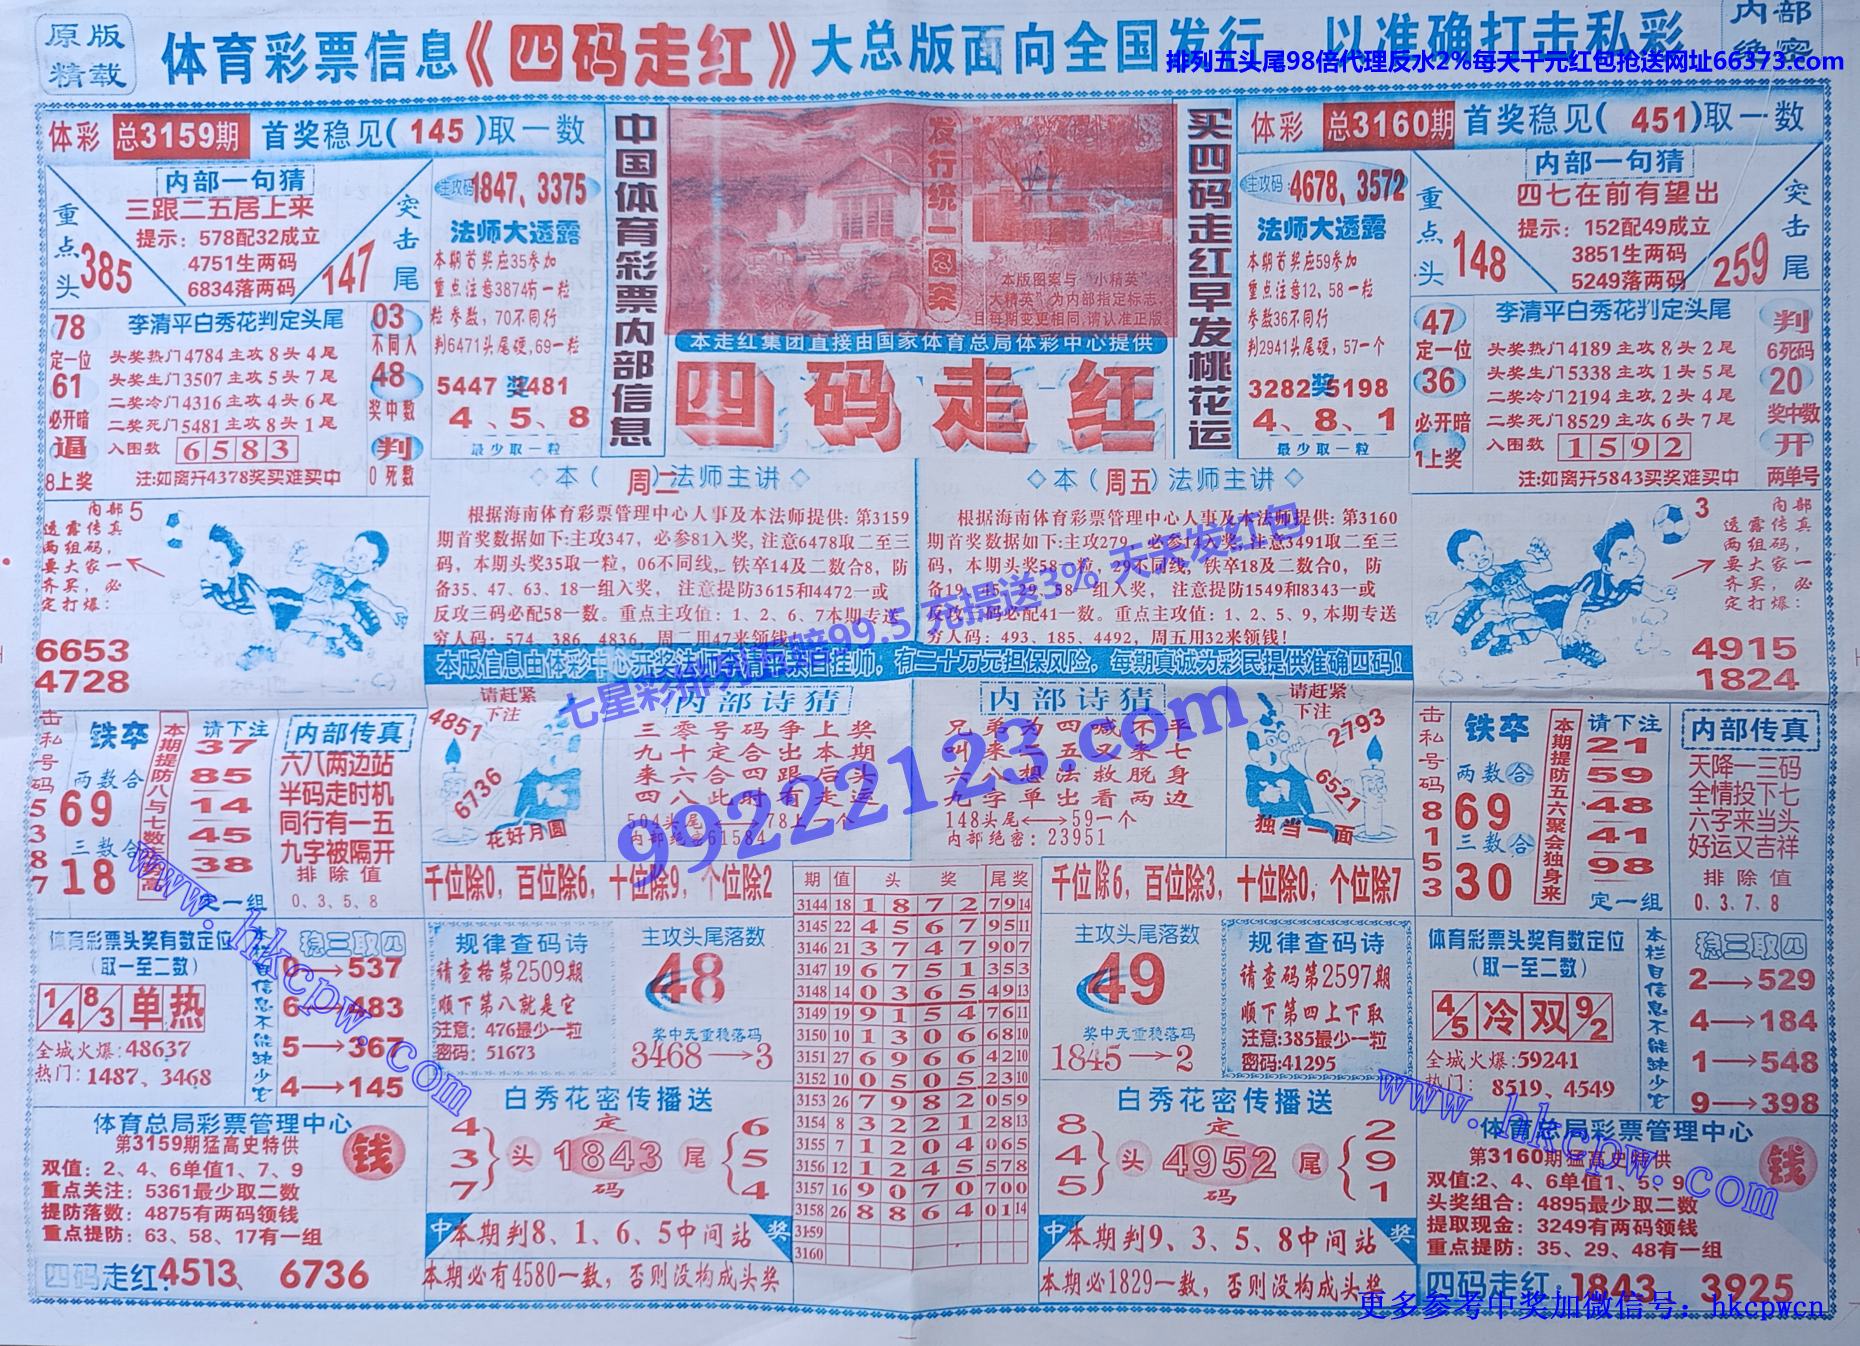 原版
精载
体育彩票信息《四码走红》大总版面向全国发行 以准确打击私彩
内部
绝密
排列五头尾98倍代理反水2%每天千元红包抢送网址66373.com
体彩 总3159期 首奖稳见(145)取一数
内部一句猜
三跟二五居上来
提示：578配32成立
4751生两码
6834落两码
重点头 385
突击尾 147
主攻码 1847、3375
法师大透露
本期首奖应35参加
重点注意3874有一粒
粒参数，70不同行
判6471头尾硬,69一粒
5447 奖 3481
4、5、8
最少取一粒
78
定一位
61
必开暗
逼
8上奖
李清平白秀花判定头尾
头奖热门4784主攻8头4尾
头奖生门3507主攻5头7尾
二奖冷门4316主攻4头6尾
二奖死门5481主攻8头1尾
入围数 6583
注:如离开4378奖买难买中
03
不同入
48
奖中数
判
0死数
中国体育彩票内部信息
发行统一图案
本版图案与“小精英”
大精英”为内部指定标志，
且每期变更相同,请认准正版
本走红集团直接由国家体育总局体彩中心提供
四码走红
买四码走红早发桃花运
体彩 总3160期 首奖稳见(451)取一数
主攻码 4678、3572
法师大透露
本期首奖应59参加
重点注意12、58一粒
参数36不同行
判2941头尾硬，57一个
3282 奖 5198
4、8、1
最少取一粒
内部一句猜
四七在前有望出
提示：152配49成立
3851生两码
5249落两码
重点头 148
突击尾 259
47
定一位
36
必开暗
1上奖
李清平白秀花判定头尾
头奖热门4189主攻8头2尾
头奖生门5338主攻1头5尾
二奖冷门2194主攻2头4尾
二奖死门8529主攻6头7尾
入围数 1592
注:如离开5843买奖难买中
判
6死码
20
奖中数
开
两单号
内部 5
透露传真
两组码，
要大家一
齐买，必
定打爆：
6653
4728
◇本(周二)法师主讲◇
根据海南体育彩票管理中心人事及本法师提供：第3159
期首奖数据如下:主攻347，必参81入奖, 注意6478取二至三
码，本期头奖35取一粒，06不同线，铁卒14及二数合8，防
备35、47、63、18一组入奖， 注意提防3615和4472一或
反攻三码必配58一数。重点主攻值：1、2、6、7本期专送
穷人码：574、386、4836，周二用47来领钱!
◇本(周五)法师主讲◇
根据海南体育彩票管理中心人事及本法师提供: 第3160
期首奖数据如下:主攻279，必参14入奖,注意3491取二至三
码，本期头奖58一粒，29不同线，铁卒18及二数合0， 防
备19、45、29、58一组入奖， 注意提防1549和8343一或
反攻三码必配41一数。重点主攻值：1、2、5、9,本期专送
穷人码：493、185、4492，周五用32来领钱!
3
内部
透露传真
两组码，
要大家一
齐买，必
定打爆：
4915
1824
七星彩排列五赔99.5 充提送3% 天天发红包
99222123.com
击私号码53877
铁卒
两数合
69
三数合
18
请下注
37
85
14
45
38
定一组
内部传真
六八两边站
半码走时机
同行有一五
九字被隔开
排除值
0、3、5、8
请赶紧下注
4851
6736
花好月圆
内部诗猜
三零号码争上奖
九十定合出本期
来六合四跟后头
四八此时有走运
504头尾←→78上一个
内部绝密61584
内部诗猜
兄弟为四喊不平
叫来二五又来七
六八想法救脱身
九字单出看两边
148头尾←→59一个
内部绝密:23951
请赶紧下注
2793
6521
独当一面
击私号码8153
铁卒
两数合
69
三数合
30
本期提防五六聚会独身来
请下注
21
59
48
41
98
定一组
内部传真
天降一三码
全情投下七
六字来当头
好运又吉祥
排除值
0、3、7、8
千位除0，百位除6，十位除9，个位除2
千位除6，百位除3，十位除0，个位除7
体育彩票头奖有数定位
(取一至二数)
1/4 8/3 单热
全城火爆:48637
热门：1487、3468
本栏目信息不能缺少它
稳三取四
0→537
6→483
5→367
4→145
规律查码诗
请查格第2509期
顺下第八就是它
注意：476最少一粒
密码：51673
主攻头尾落数
48
奖中无重稳落码
3468→3
期 值 头奖 尾奖
3144 18 1872 79 14
3145 22 4567 95 11
3146 21 3747 90 7
3147 19 6751 35 3
3148 14 0365 49 13
3149 19 9154 76 11
3150 10 1306 68 10
3151 27 6966 42 10
3152 10 0505 23 10
3153 26 7982 05 9
3154 8 3221 28 13
3155 7 1204 06 5
3156 12 1245 57 8
3157 16 9070 70 0
3158 26 8864 01 14
3159
3160
主攻头尾落数
49
奖中无重稳落码
1845→2
规律查码诗
请查码第2597期
顺下第四上下取
注意:385最少一粒
密码:41295
体育彩票头奖有数定位
(取一至二数)
4/5 冷双 9/2
全城火爆:59241
热门： 8519、4549
本栏目信息不能缺少它
稳三取四
2→529
4→184
1→548
9→398
体育总局彩票管理中心
第3159期猛高史特供
双值：2、4、6单值1、7、9
重点关注：5361最少取二数
提防落数：4875有两码领钱
重点提防：63、58、17有一组
钱
四码走红:4513、 6736
白秀花密传播送
4 3 7 头 定 1843 码 尾 6 5 4
中 本期判8、1、6、5中间站 奖
本期必有4580一数，否则没构成头奖
白秀花密传播送
8 4 5 头 定 4952 码 尾 2 9 1
中 本期判9、3、5、8中间站 奖
本期必1829一数，否则没构成头奖
体育总局彩票管理中心
第3160期猛高史特供
双值:2、4、6单值1、5、9
头奖组合：4895最少取二数
提取现金：3249有两码领钱
重点提防：35、29、48有一组
钱
四码走红:1843、 3925
www.hkcpw.com
www.hkcpw.com
更多参考中奖加微信号：hkcpwcn